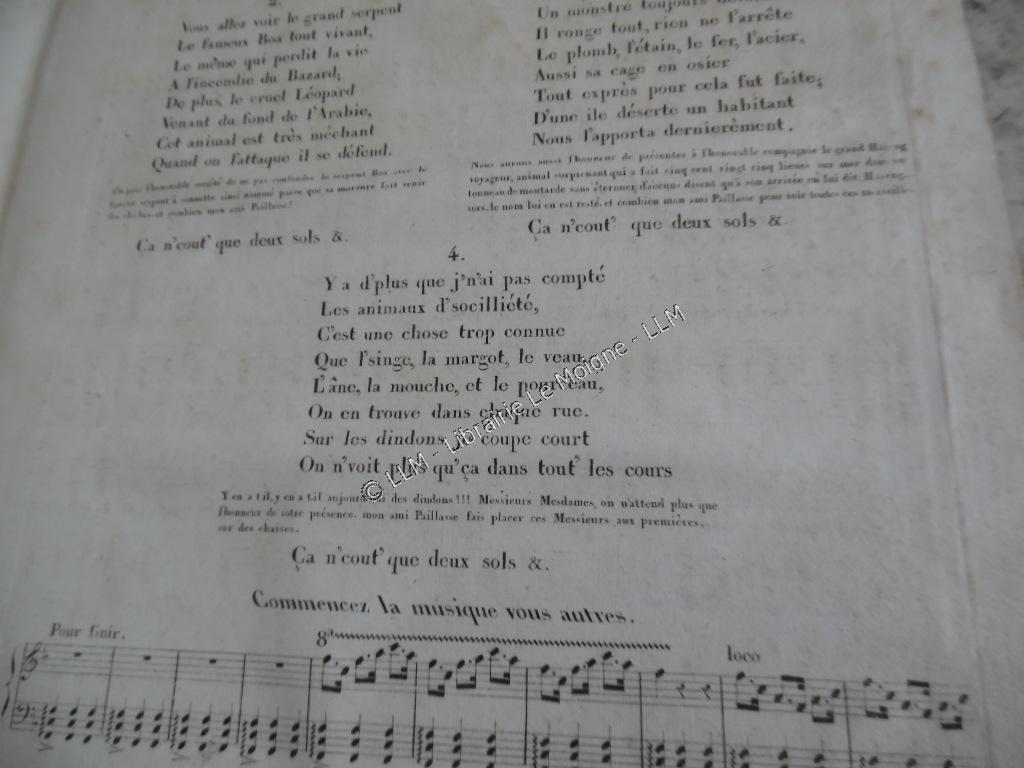 2.
Vous allez voir le grand serpent
Le fameux Boa tout vivant,
Le même qui perdit la vie
A l'incendie du Bazard;
De plus, le cruel Léopard
Venant du fond de l'Arabie,
Cet animal est très méchant
Quand on l'attaque il se défend.
On prie l'honorable société de ne pas confondre le serpent Boa avec le
fameux serpent à sonnette ainsi nommé parce que sa morsure fait venir
des cloches, et combien mon ami Paillasse!
Ça n'cout' que deux sols &.
Un monstre toujours
Il ronge tout, rien ne l'arrête
Le plomb, l'étain, le fer, l'acier,
Aussi sa cage en osier
Tout exprès pour cela fut faite;
D'une ile déserte un habitant
Nous l'apporta dernierèment.
Nous aurons aussi l'honneur de présenter à l'honorable compagnie le grand
voyageur, animal surprenant qui a fait cinq cent vingt cinq lieues sur mer dans un
tonneau de moutarde sans éternuer, d'aucuns disent qu'à son arrivée on lui dit
le nom lui en est resté, et combien mon ami Paillasse pour voir toutes ces
Ça n'cout' que deux sols &.
4.
Y a d'plus que j'n'ai pas compté
Les animaux d'socilliété,
C'est une chose trop connue
Que l'singe, la margot, le veau,
L'âne, la mouche, et le pourceau,
On en trouve dans chaque rue.
Sur les dindons coupe court
On n'voit plus qu'ça dans tout' les cours
Y en a t'il, y en a t'il aujourd'hui des dindons!!! Messieurs Mesdames, on n'attend plus que
l'honneur de votre présence. mon ami Paillasse fais placer ces Messieurs aux premières,
sur des chaises.
Ça n'cout' que deux sols &.
Commencez la musique vous autres.
Pour finir.
8a
loco
© LLM - Librairie Le Moigne - LLM